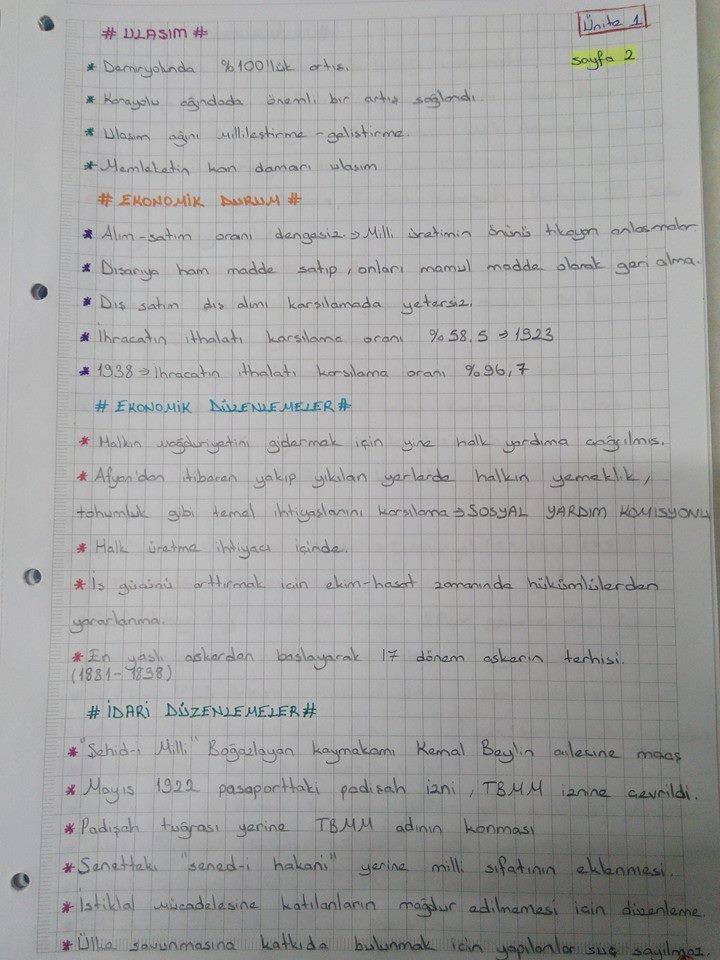 Ünite 1
# ULASIM #
sayfa 2
* Demiryolunda %100'lük artış.
* Karayolu ağındada önemli bir artış sağlandı.
* Ulasım ağını millileştirme - geliştirme.
* Memleketin kan damarı ulasım
# EKONOMİK DURUM #
* Alım-satım oranı dengesiz. → Milli üretimin önünü tıkayan anlaşmalar
* Dışarıya ham madde satıp, onları mamul madde olarak geri alma.
* Dış satım dış alımı karşılamada yetersiz.
* İhracatın ithalatı karsılama oranı %58,5 → 1923
* 1938 → İhracatın ithalatı karsılama oranı %96,7
# EKONOMİK DÜZENLEMELER #
* Halkın mağduriyetini gidermek için yine halk yardıma çağılmış.
* Afyon'dan itibaren yakıp yıkılan yerlerde halkın yemeklik,
tohumluk gibi temel ihtiyaslarını karsılama → SOSYAL YARDIM KOMİSYONU
* Halk üretme ihtiyacı içinde.
* İş gücünü arttırmak icin ekim-hasat zamanında hükümlülerden
yararlanma.
* En yaslı askerden başlayarak 17 dönem askerin terhisi.
(1881-1898)
# İDARİ DÜZENLEMELER #
* "Şehid-i Milli" Boğazlayan kaymakamı Kemal Bey'in ailesine maaş
* Mayıs 1922 pasaporttaki padişah izni, TBMM iznine çevrildi.
* Padişah tuğrası yerine TBMM adının konması
* Senetteki "sened-i hakani" yerine milli sıfatının eklenmesi.
* İstiklal mücadelesine katılanların mağdur edilmemesi için düzenleme.
* Ülke savunmasına katkıda bulunmak için yapılanlar suç sayılmaz.